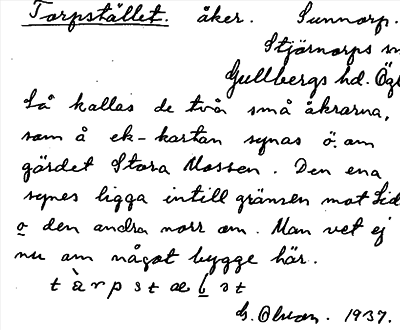 Torpstället. åker. Sunnorp.
Stjärnorps sn
Gullbergs hd. Ögl
Så kallas de två små åkrarna,
som å ek-kartan synas ö. om
gärdet Stora Mossen. Den ena
synes ligga intill gränsen mot Lid
o den andra norr om. Man vet ej
nu om något bygge här.
t à r p s t æ l s t
G. Olson. 1937.